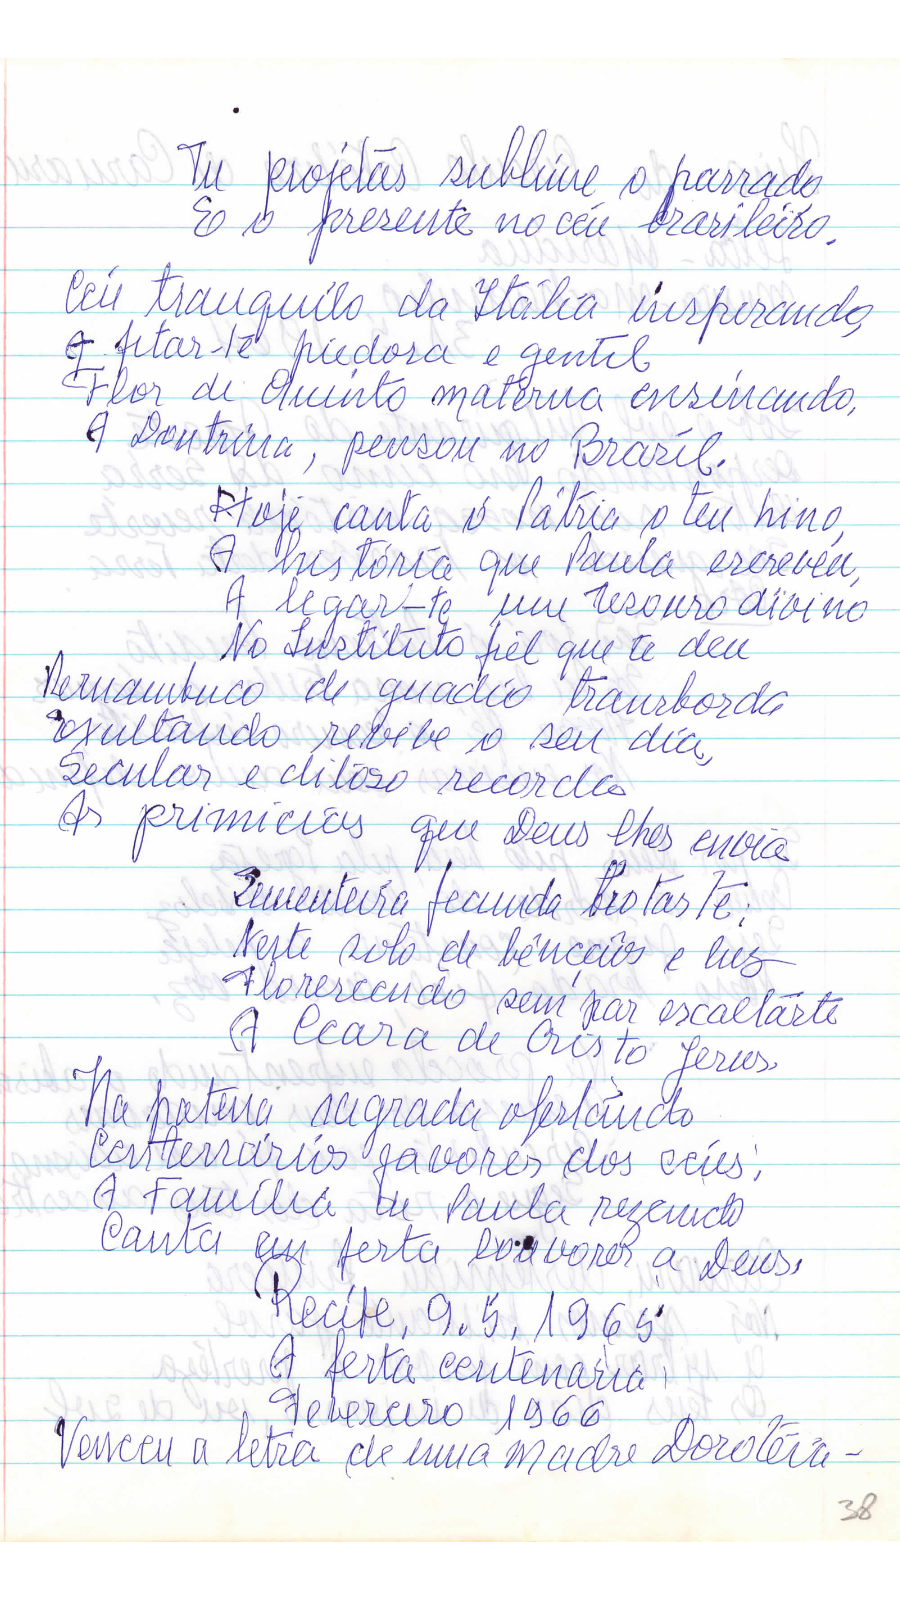 Tu projetas sublime o passado
E o presente no céu brasileiro.
Céu tranquilo da Itália inspirando,
A fitar-te piedosa e gentil
Flor de Quinto materna ensinando,
A Doutrina, pensou no Brasil.
Hoje canta ó Pátria o teu hino,
A história que Paula escreveu,
A legar-te um Tesouro divino
No Instituto fiel que te deu
Pernambuco de gaudio transborda
exultando revive o seu dia,
Secular e ditoso recorda
As primicias que Deus lhes envia
Sementeira fecunda brotaste;
Neste solo de bênçãos e luz
Florescendo sem par escaltaste
A Ceara de Cristo Jesus.
Na patena sagrada ofertando
Centenários favores dos céus;
A Família de Paula rezando
Canta em festa Louvores a Deus.
Recife, 9.5.1965
A festa centenária:
Fevereiro 1966
Venceu a letra de uma Madre Dorotéia -
38